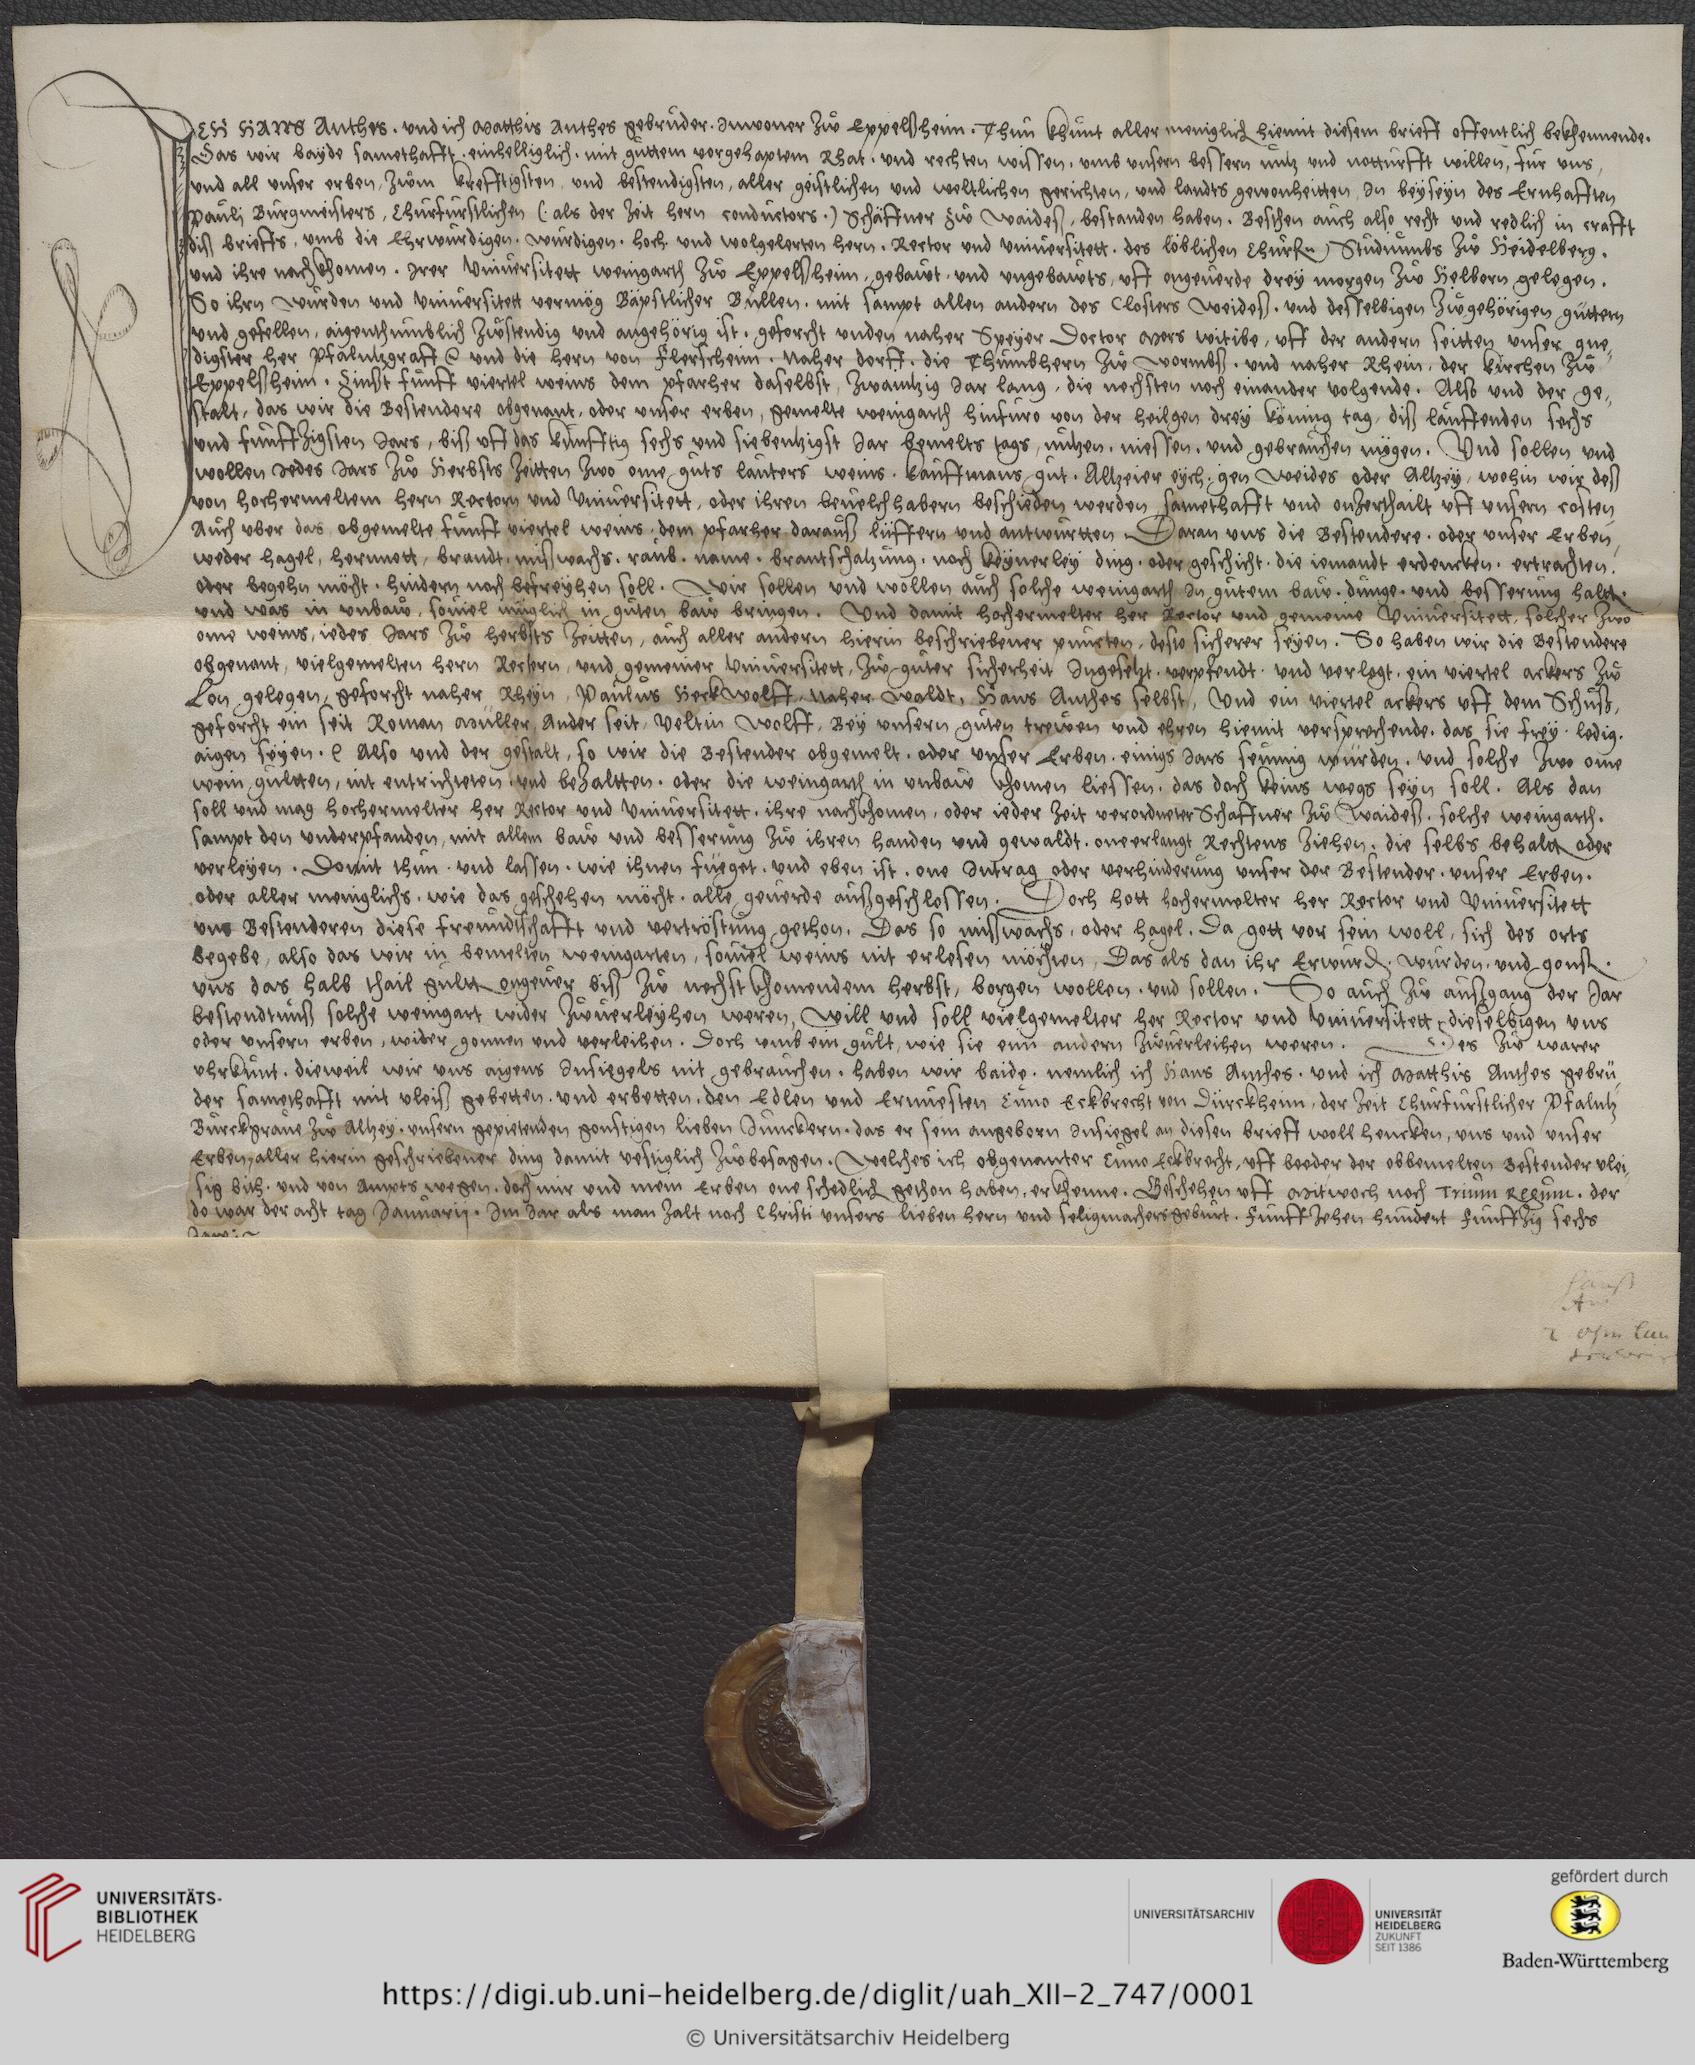 ICH HANS Anthes. und ich Matthis Anthes gebrüder. Inwoner zů Eppelßheim. Thün khünt aller meniglich hiemit diesem brieff offentlich bekhennende.
Das wir bayde samethafft. einhelliglich. mit güttem vorgehaptem Rhat. und rechten wissen. umb unsern bessern nütz und notturfft willen, für uns,
und all unser erben, zům krefftigsten, und bestendigsten, aller geistlichen und weltlichen gerichten, und landts gewonheitten, In beyseyn des Ernhafften
Pauli Bürgmeisters, Churfürstlichen (: als der zeit hern conductors.) Schäffner zů Waideß, bestanden haben. Bestehen auch also recht und redlich in crafft
diß brieffs, umb die Ehrwürdigen. würdigen. hoch. und wolgelerten hern. Rector und Universitett. des löblichen Churfn) Studiumbs zů Heidelberg.
und ihre nachkhomen. Irer Universitett weingarth zů Eppelßheim, gebawt. und ungebawts, uff ongeuerde drey morgen zů Helborn gelegen.
So ihrn würden und Universitett vermög Bäpstlicher Bullen. mit sampt allen andern des Closters Weideß. und desselbigen zůgehörigen güttern
und gefellen, aigenthumblich zůstendig und angehörig ist. geforcht unden naher Speyer Doctor Mers witibe, uff der andern seitten unser gne„
digster her Pfaltzgraff ꝛc und die hern von Flersheim. Naher dorff. die Thumbhern zů Wormbß. und naher Rhein, der kirchen zů
Eppelßheim. Zinßt fünff viertel weins dem pfarher daselbst, zwantzig Jar lang, die nechsten noch einander volgende. Also und der ge„
stalt, das wir die Bestendere obgenant, oder unser erben, gemelte weingarth hinfüro von der heilgen drey köning tag, diß lauffenden sechs
und funffzigsten Jars, biß uff das künfftig sechs und siebentzigst Jar bemelts tags, nützen. niessen. und gebrauchen mögen. Und sollen und
wollen Jedes Jars zů Herbsts zeitten zwo ome güts lauters weins. Kauffmans güt. Altzeier eych. gen Weides oder Altzey, wohin wir deß
von hochermeltem hern Rectorn und Universitett, oder ihren beuelchhabern beschieden werden samethafft und onzerthailt uff unsern costen,
Auch uber das obgemelte fünff viertel weins. dem pfarher darauß lüffern und antwurtten. Daran uns die Bestendere. oder unser Erben,
weder hagel, hermett, brandt, mißwachs. raub. name. brantschatzung. noch keynerley ding. oder geschicht. die iemandt erdencken. ertrachten.
oder begehn möcht. hindern noch befreyhen soll. Wir sollen und wollen auch solche weingarth In gütem baw. dunge. und besserung haltn.
und was in unbaw, souiel müglich in güten baw bringen. Und damit hochermelter her Rector und gemeine Universitett, solcher zwo
ome weins, iedes Jars zů herbsts zeitten, auch aller andern hierin beschriebener puncten, desto sicherer seyen. So haben wir die Bestendere
obgenant, vielgemelten hern Rectorn, und gemeiner Universitett, zů güter sicherheit Ingesetzt. verpfendt. und verlegt. ein viertel ackers zů
Lon gelegen, geforcht naher Rheyn, Paulus Herkwolff, Naher Waldt, Hans Anthes selbst, Und ein viertel ackers uff dem Schuß,
geforcht ein seit Roman Müller, Ander seit, Veltin Wolff, Bey unsern güten trewen und ehren hiemit versprechende. das sie frey. ledig.
aigen seyen. ꝛc Also und der gestalt, so wir die Bestender obgemelt. oder unser Erben. einigs Jars seümig würden. und solche zwo ome
wein gültten, nit entrichteten. und bezaltten. oder die weingarth in unbaw khomen liessen. das doch keins wegs seyn soll. Als dan
soll und mag hochermelter her Rector und Universitett. ihre nachkhomen, oder ieder zeit verordneter Schaffner zů Waideß. solche weingarth.
sampt den underpfanden, mit allem baw und besserung zů ihren handen und gewaldt. onerlangt Rechtens ziehen. die selbs behaltn oder
verleyen. Domit thun. und lassen. wie ihnen füeget. und eben ist. one Intrag oder verhinderung unser der Bestender. unser Erben.
oder aller meniglichs. wie das geschehen möcht. alle geuerde außgeschlossen. Doch hott hochermelter her Rector und Universitett
uns Bestenderen diese freündtschafft und vertröstung gethon. Das so mißwachs, oder hagel. Da gott vor sein woll, sich des orts
begebe, also das wir in bemelten weingarten, souiel weins nit erlesen möchten, Das als dan ihr Erwürd. würden. und gonst.
uns das halb thail gultt ongeuer biß zů nechst khomendem herbst, borgen wollen. und sollen. So auch zů außgang der Jar
bestendtnuß solche weingart wider zůuerleyhen weren, Will und soll vielgemelter her Rector und Universitett, dieselbigen uns
oder unsern erben, wider gonnen und verleihen. Doch umb ein gült, wie sie eim andern zůuerleihen weren. Des zů warer
uhrkunt. dieweil wir uns aigens Insiegels nit gebrauchen. haben wir baide. nemlich ich Hans Anthes. und ich Matthis Anthes gebrü„
der samethafft mit vleiß gebetten. und erbetten, den Edlen und Ernuesten Cuno Eckbrecht von Dürckheim, der zeit Churfürstlicher Pfaltz
Bürckgraue zů Altzey. unsern gepietenden gonstigen lieben Junckern. das er sein angeborn Insiegel an diesen brieff woll hencken, uns und unser
Erben, aller hierin geschriebener ding damit vestiglich zůbesagen. Welches ich obgenanter Cuno Eckbrecht, uff beeder der obbemelten Bestender vlei„
sig bith. und von Ampts wegen. doch mir und mein Erben one schedlich gethon haben, erkhenne. Geschehen uff Mitwoch noch Trium Regum. der
do war der acht tag Januarij. Im Jar als man zalt noch Christi unsers lieben hern und seligmachers geburt. Funffzehen hundert Funffzig sechs
Hanß
UNIVERSITÄTS-
BIBLIOTHEK
HEIDELBERG
UNIVERSITÄTSARCHIV
UNIVERSITÄT
HEIDELBERG
ZUKUNFT
SEIT 1386
gefördert durch
Baden-Württemberg
https://digi.ub.uni-heidelberg.de/diglit/uah_XII-2_747/0001
© Universitätsarchiv Heidelberg